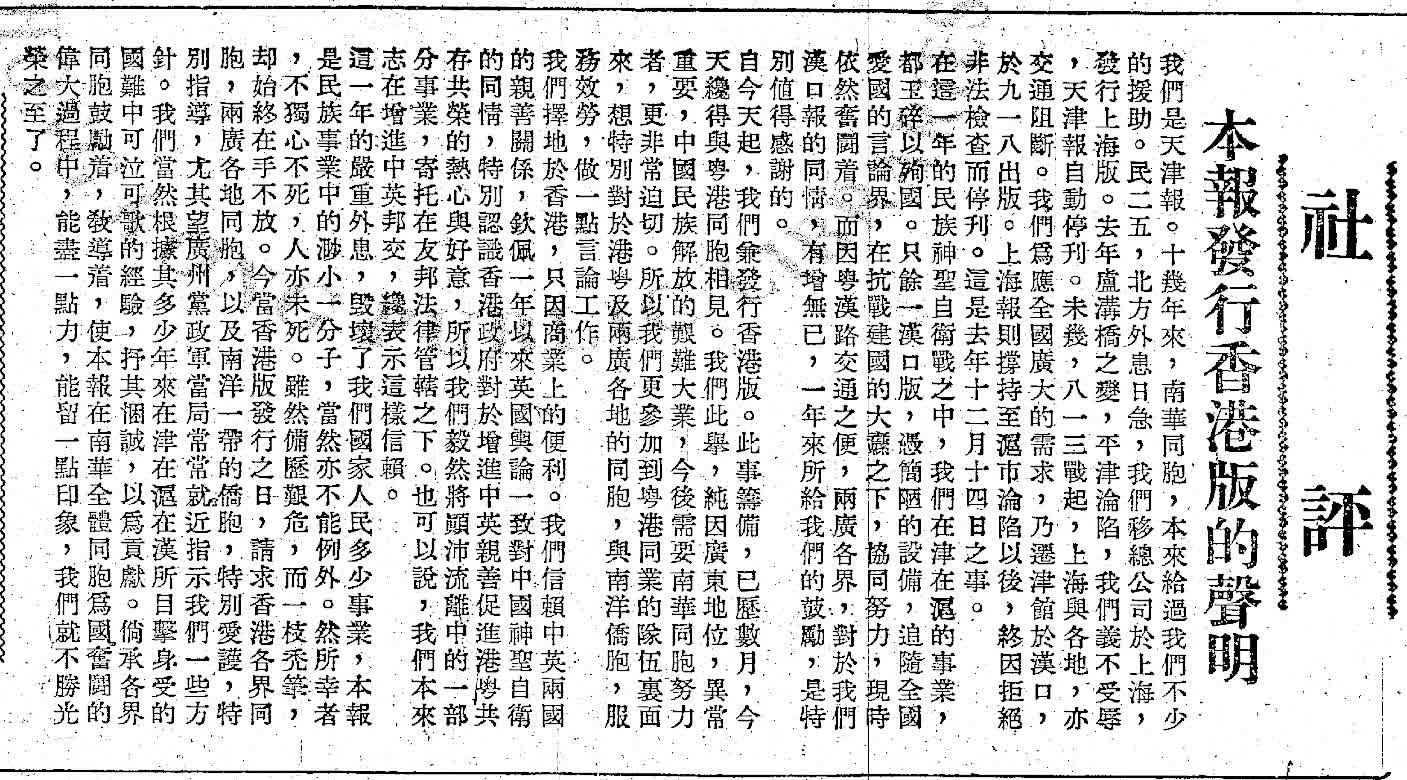 社評
本報發行香港版的聲明
我們是天津報。十幾年來，南華同胞，本來給過我們不少
的援助。民二五，北方外患日急，我們移總公司於上海，
發行上海版。去年盧溝橋之變，平津淪陷，我們義不受辱
，天津報自動停刊。未幾，八一三戰起，上海與各地，亦
交通阻斷。我們爲應全國廣大的需求，乃遷津館於漢口，
於九一八出版。上海報則撐持至滬市淪陷以後，終因拒絕
非法檢查而停刊。這是去年十二月十四日之事。
在這一年的民族神聖自衛戰之中，我們在津在滬的事業，
都玉碎以殉國。只餘一漢口版，憑簡陋的設備，追隨全國
愛國的言論界，在抗戰建國的大纛之下，協同努力，現時
依然奮鬪着。而因粵漢路交通之便，兩廣各界，對於我們
漢口報的同情，有增無已，一年來所給我們的鼓勵，是特
別值得感謝的。
自今天起，我們兼發行香港版。此事籌備，已歷數月，今
天纔得與粵港同胞相見。我們此舉，純因廣東地位，異常
重要，中國民族解放的艱難大業，今後需要南華同胞努力
者，更非常迫切。所以我們更參加到粵港同業的隊伍裏面
來，想特別對於港粵及兩廣各地的同胞，與南洋僑胞，服
務效勞，做一點言論工作。
我們擇地於香港，只因商業上的便利。我們信賴中英兩國
的親善關係，欽佩一年以來英國輿論一致對中國神聖自衛
的同情，特別認識香港政府對於增進中英親善促進港粵共
存共榮的熱心與好意，所以我們毅然將顚沛流離中的一部
分事業，寄托在友邦法律管轄之下。也可以說，我們本來
志在增進中英邦交，纔表示這樣信賴。
這一年的嚴重外患，毀壞了我們國家人民多少事業，本報
是民族事業中的渺小一分子，當然亦不能例外。然所幸者
，不獨心不死，人亦未死。雖然備歷艱危，而一枝禿筆，
却始終在手不放。今當香港版發行之日，請求香港各界同
胞，兩廣各地同胞，以及南洋一帶的僑胞，特別愛護，特
別指導，尤其望廣州黨政軍當局常常就近指示我們一些方
針。我們當然根據其多少年來在津在滬在漢所目擊身受的
國難中可泣可歌的經驗，抒其悃誠，以爲貢獻。倘承各界
同胞鼓勵着，敎導着，使本報在南華全體同胞爲國奮鬪的
偉大過程中，能盡一點力，能留一點印象，我們就不勝光
榮之至了。